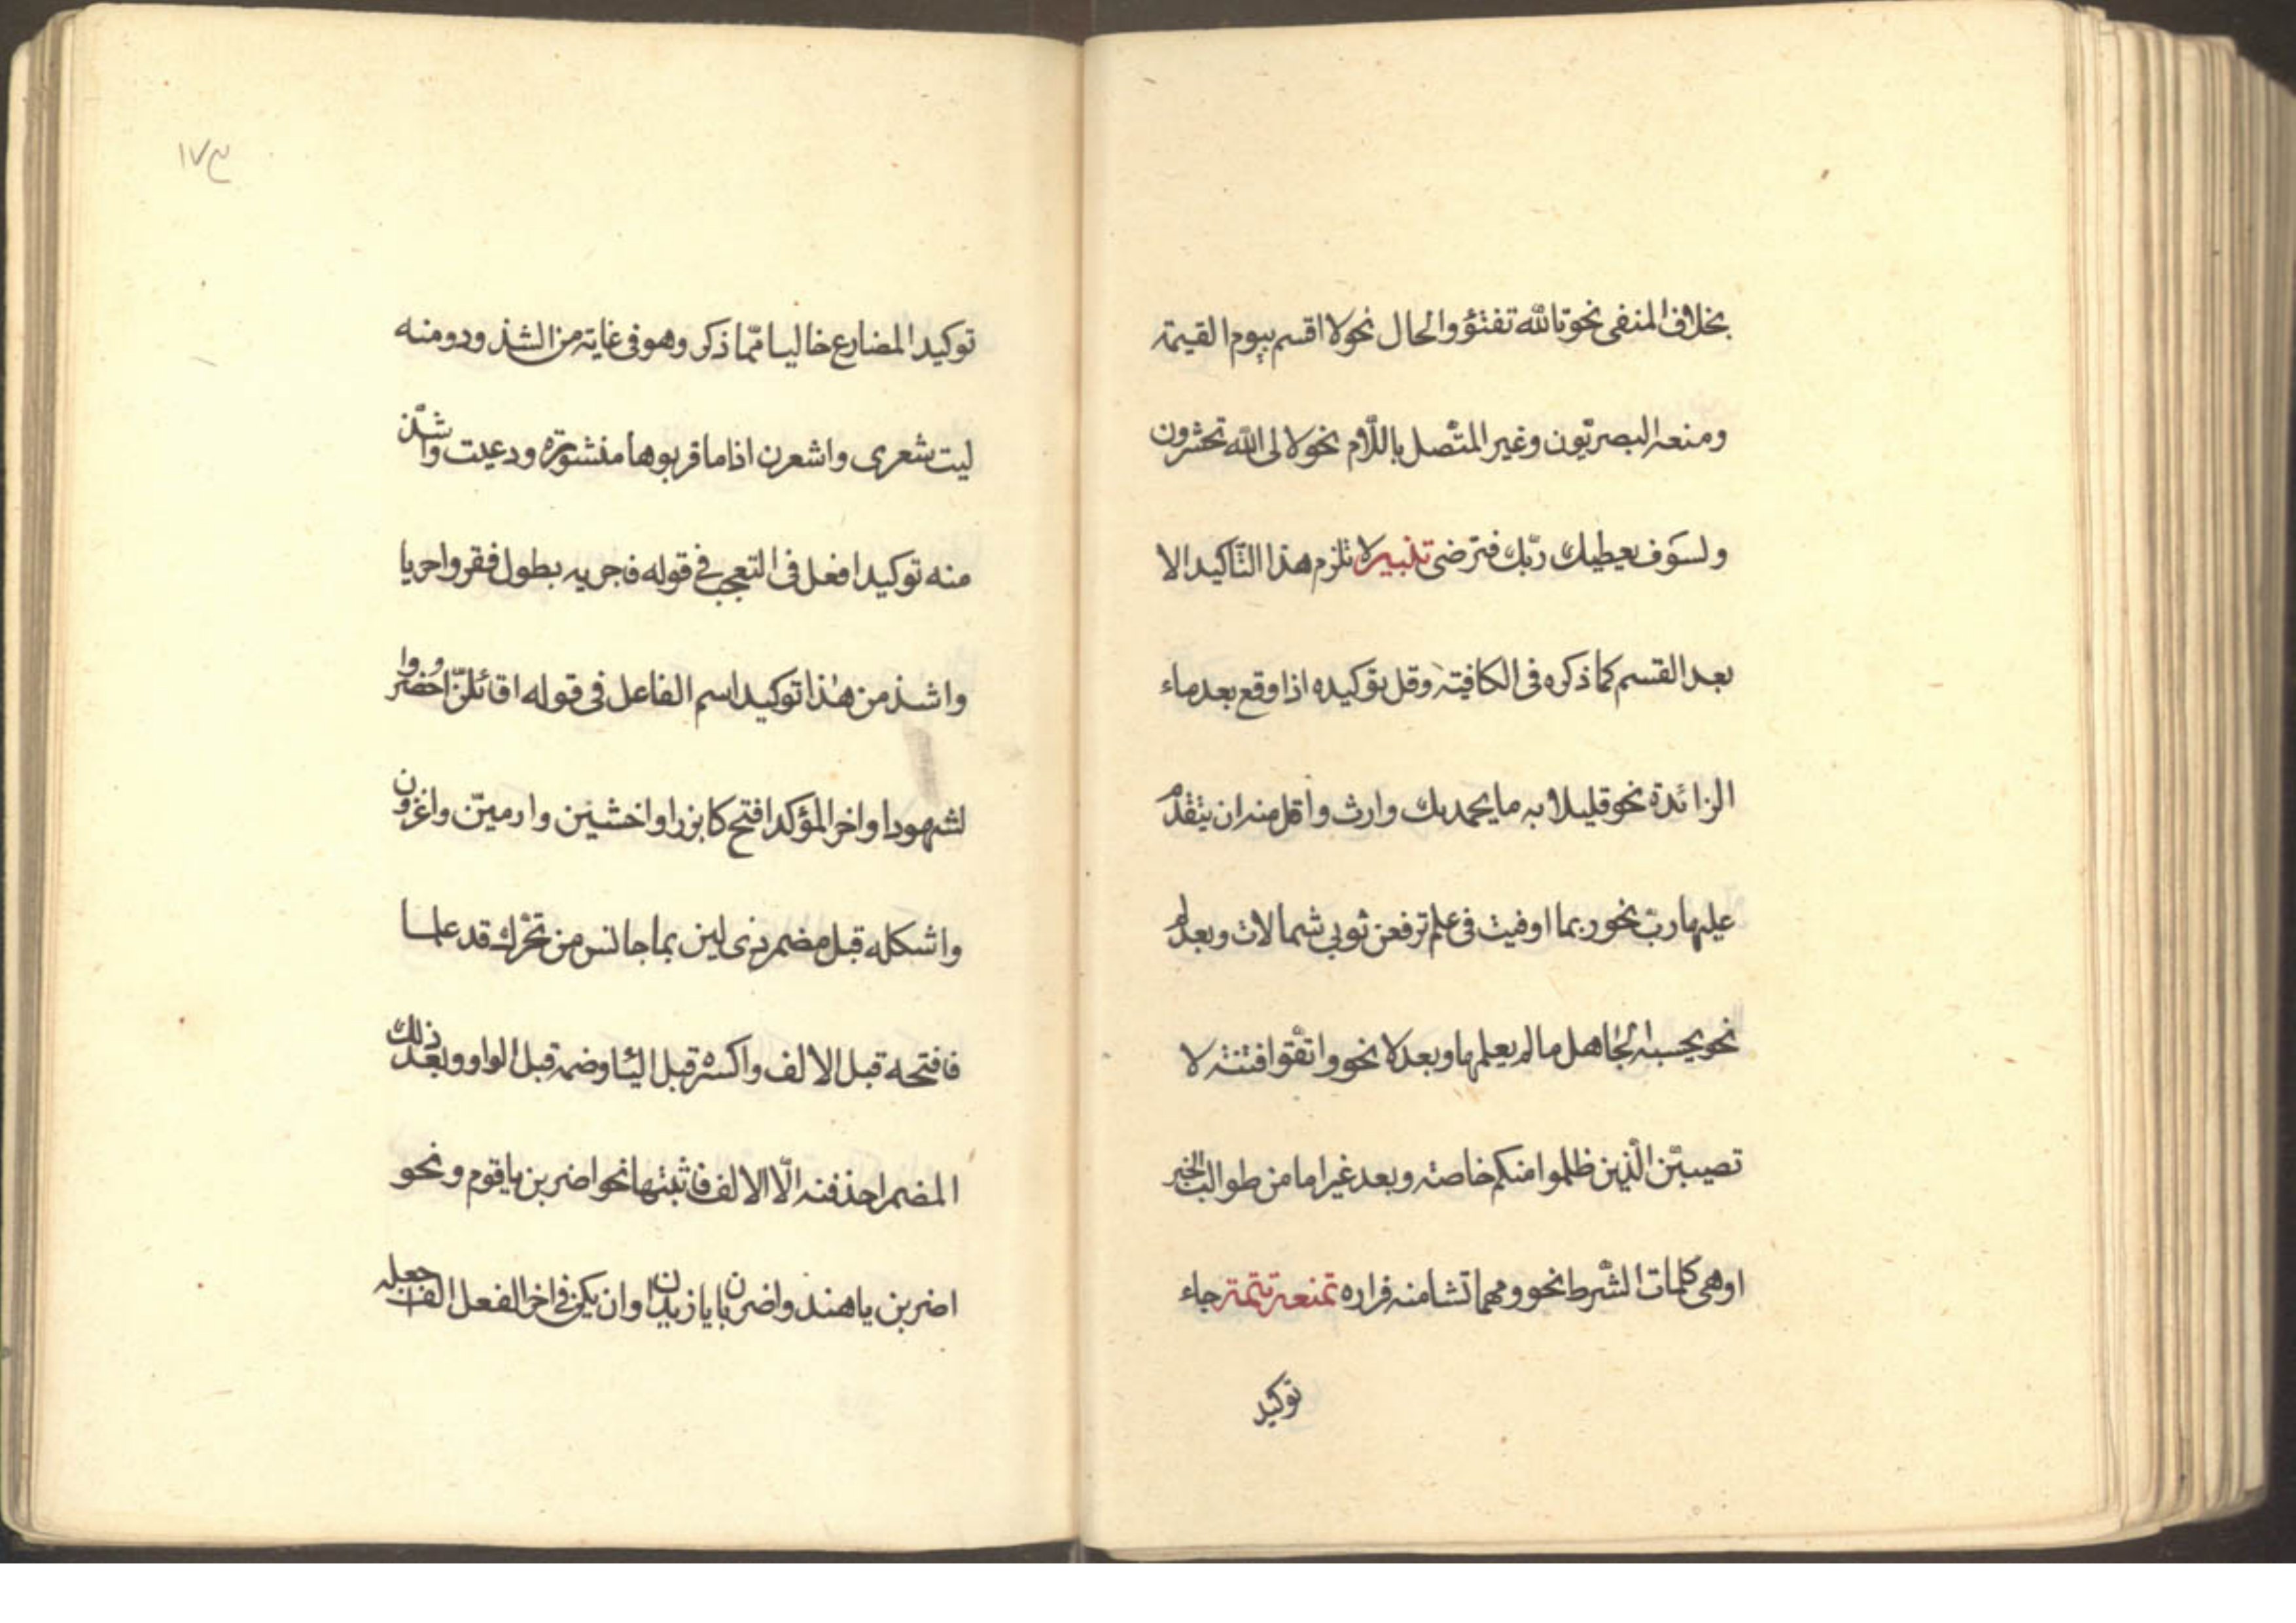 بخلاف المنفى نحو تالله تفتؤ والحال نحو لا اقسم بيوم القيمة
ومنعه البصريّون وغير المتّصل باللّام نحو لالى الله تحشرون
ولسوف يعطيك ربّك فترضى تنبيه لا تلزم هذا التّاكيد الا
بعد القسم كما ذكره فى الكافية وقل توكيده اذا وقع بعد ماء
الزائدة نحو قليلا به ما يحمدنك وارث واقل منه ان يتقدّم
عليها ربّ نحو ربما اوفيت فى علم ترفعن ثوبى شمالات وبعد لم
نحو يحسبه الجاهل ما لم يعلمها وبعد لا نحو واتقوا فتنة لا
تصيبنّ الّذين ظلموا منكم خاصة وبعد غير اما من طوالب الخبر
او هى كلمات الشّرط نحو ومهما تشا منه فزاره تمنعه تتمة جاء
توكيد
١٧٣
توكيد المضارع خاليا ممّا ذكر وهو فى غاية من الشذوذ ومنه
ليت شعرى واشعرن اذا ما قربوها منشورة ودعيت واشّذ
منه توكيد افعل فى التعجب فى قوله فاحر به بطول فقر واحريا
واشذ من هذا توكيد اسم الفاعل فى قوله اقائلنّ احضروا
لشهودا واخر المؤكد افتح كابرزا واخشين وارمينّ واغزون
واشكله قبل مضمر ذى لين بما جانس من تحرّك قد علما
فافتحه قبل الالف واكسره قبل اليا وضمه قبل الواو وبعد ذلك
المضمر احذفنه الّا الالف فاثبتها نحو اضربن يا قوم ونحو
اضربن يا هند واضربان يا زيدان وان يكن فى اخر الفعل الف فاجعله